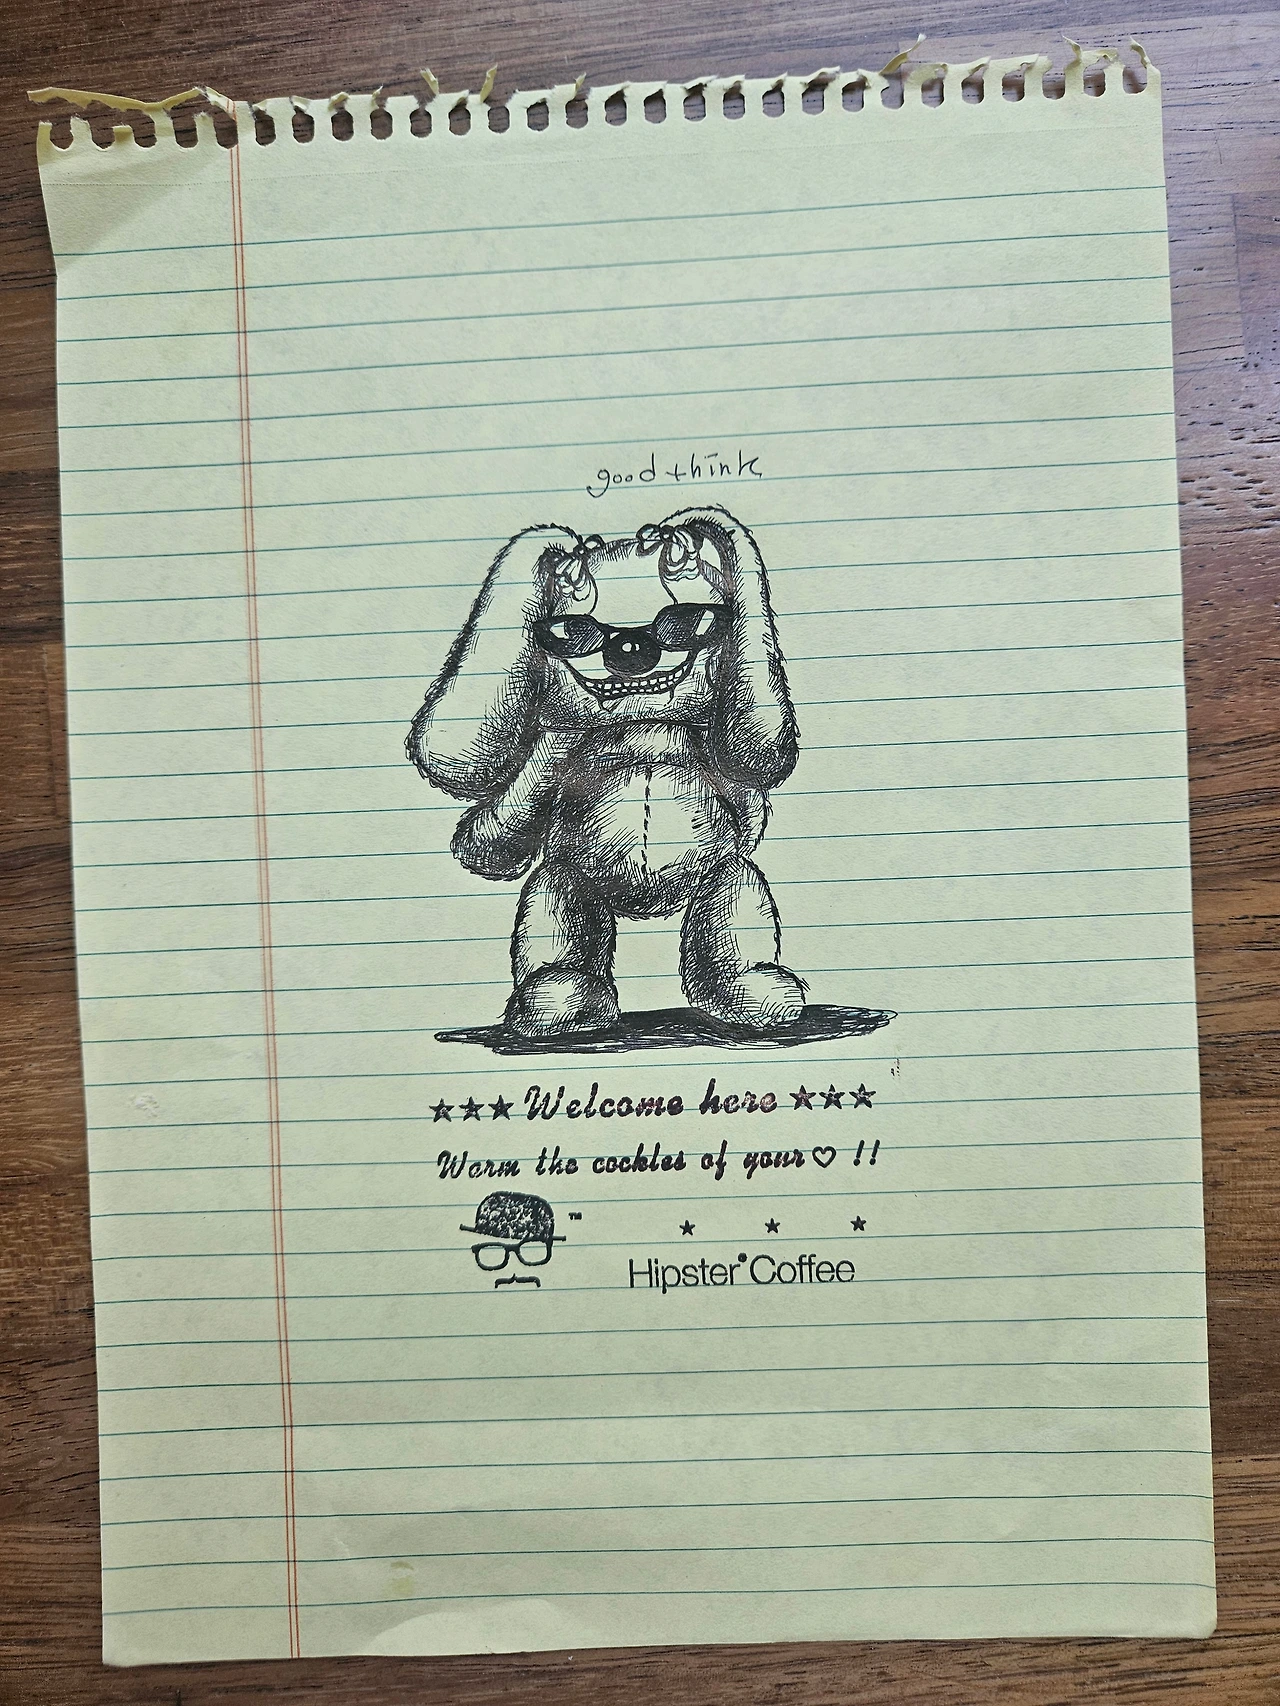 good think
★★★ Welcome here ★★★
Warm the cockles of your♡ !!
TM
★ ★ ★
Hipster Coffee